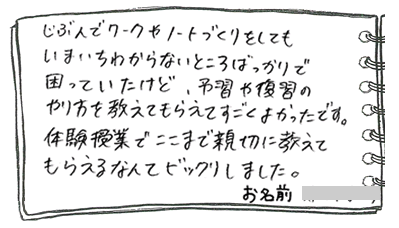 じぶんでワークやノートづくりをしても
いまいちわからないところばっかりで
困っていたけど、予習や復習の
やり方を教えてもらえてすごくよかったです。
体験授業でここまで親切に教えて
もらえるなんてビックリしました。
お名前